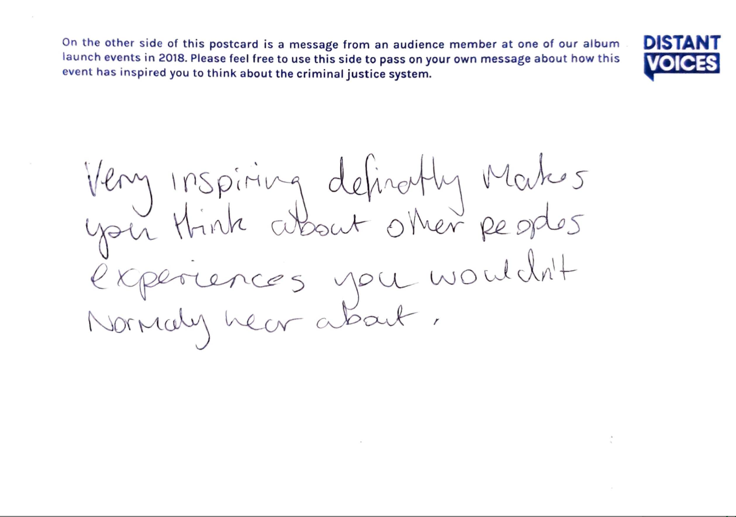 On the other side of this postcard is a message from an audience member at one of our album
launch events in 2018. Please feel free to use this side to pass on your own message about how this
event has inspired you to think about the criminal justice system.
DISTANT
VOICES
Very inspiring definatly makes
you think about other peoples
experiences you wouldn't
Normaly hear about.